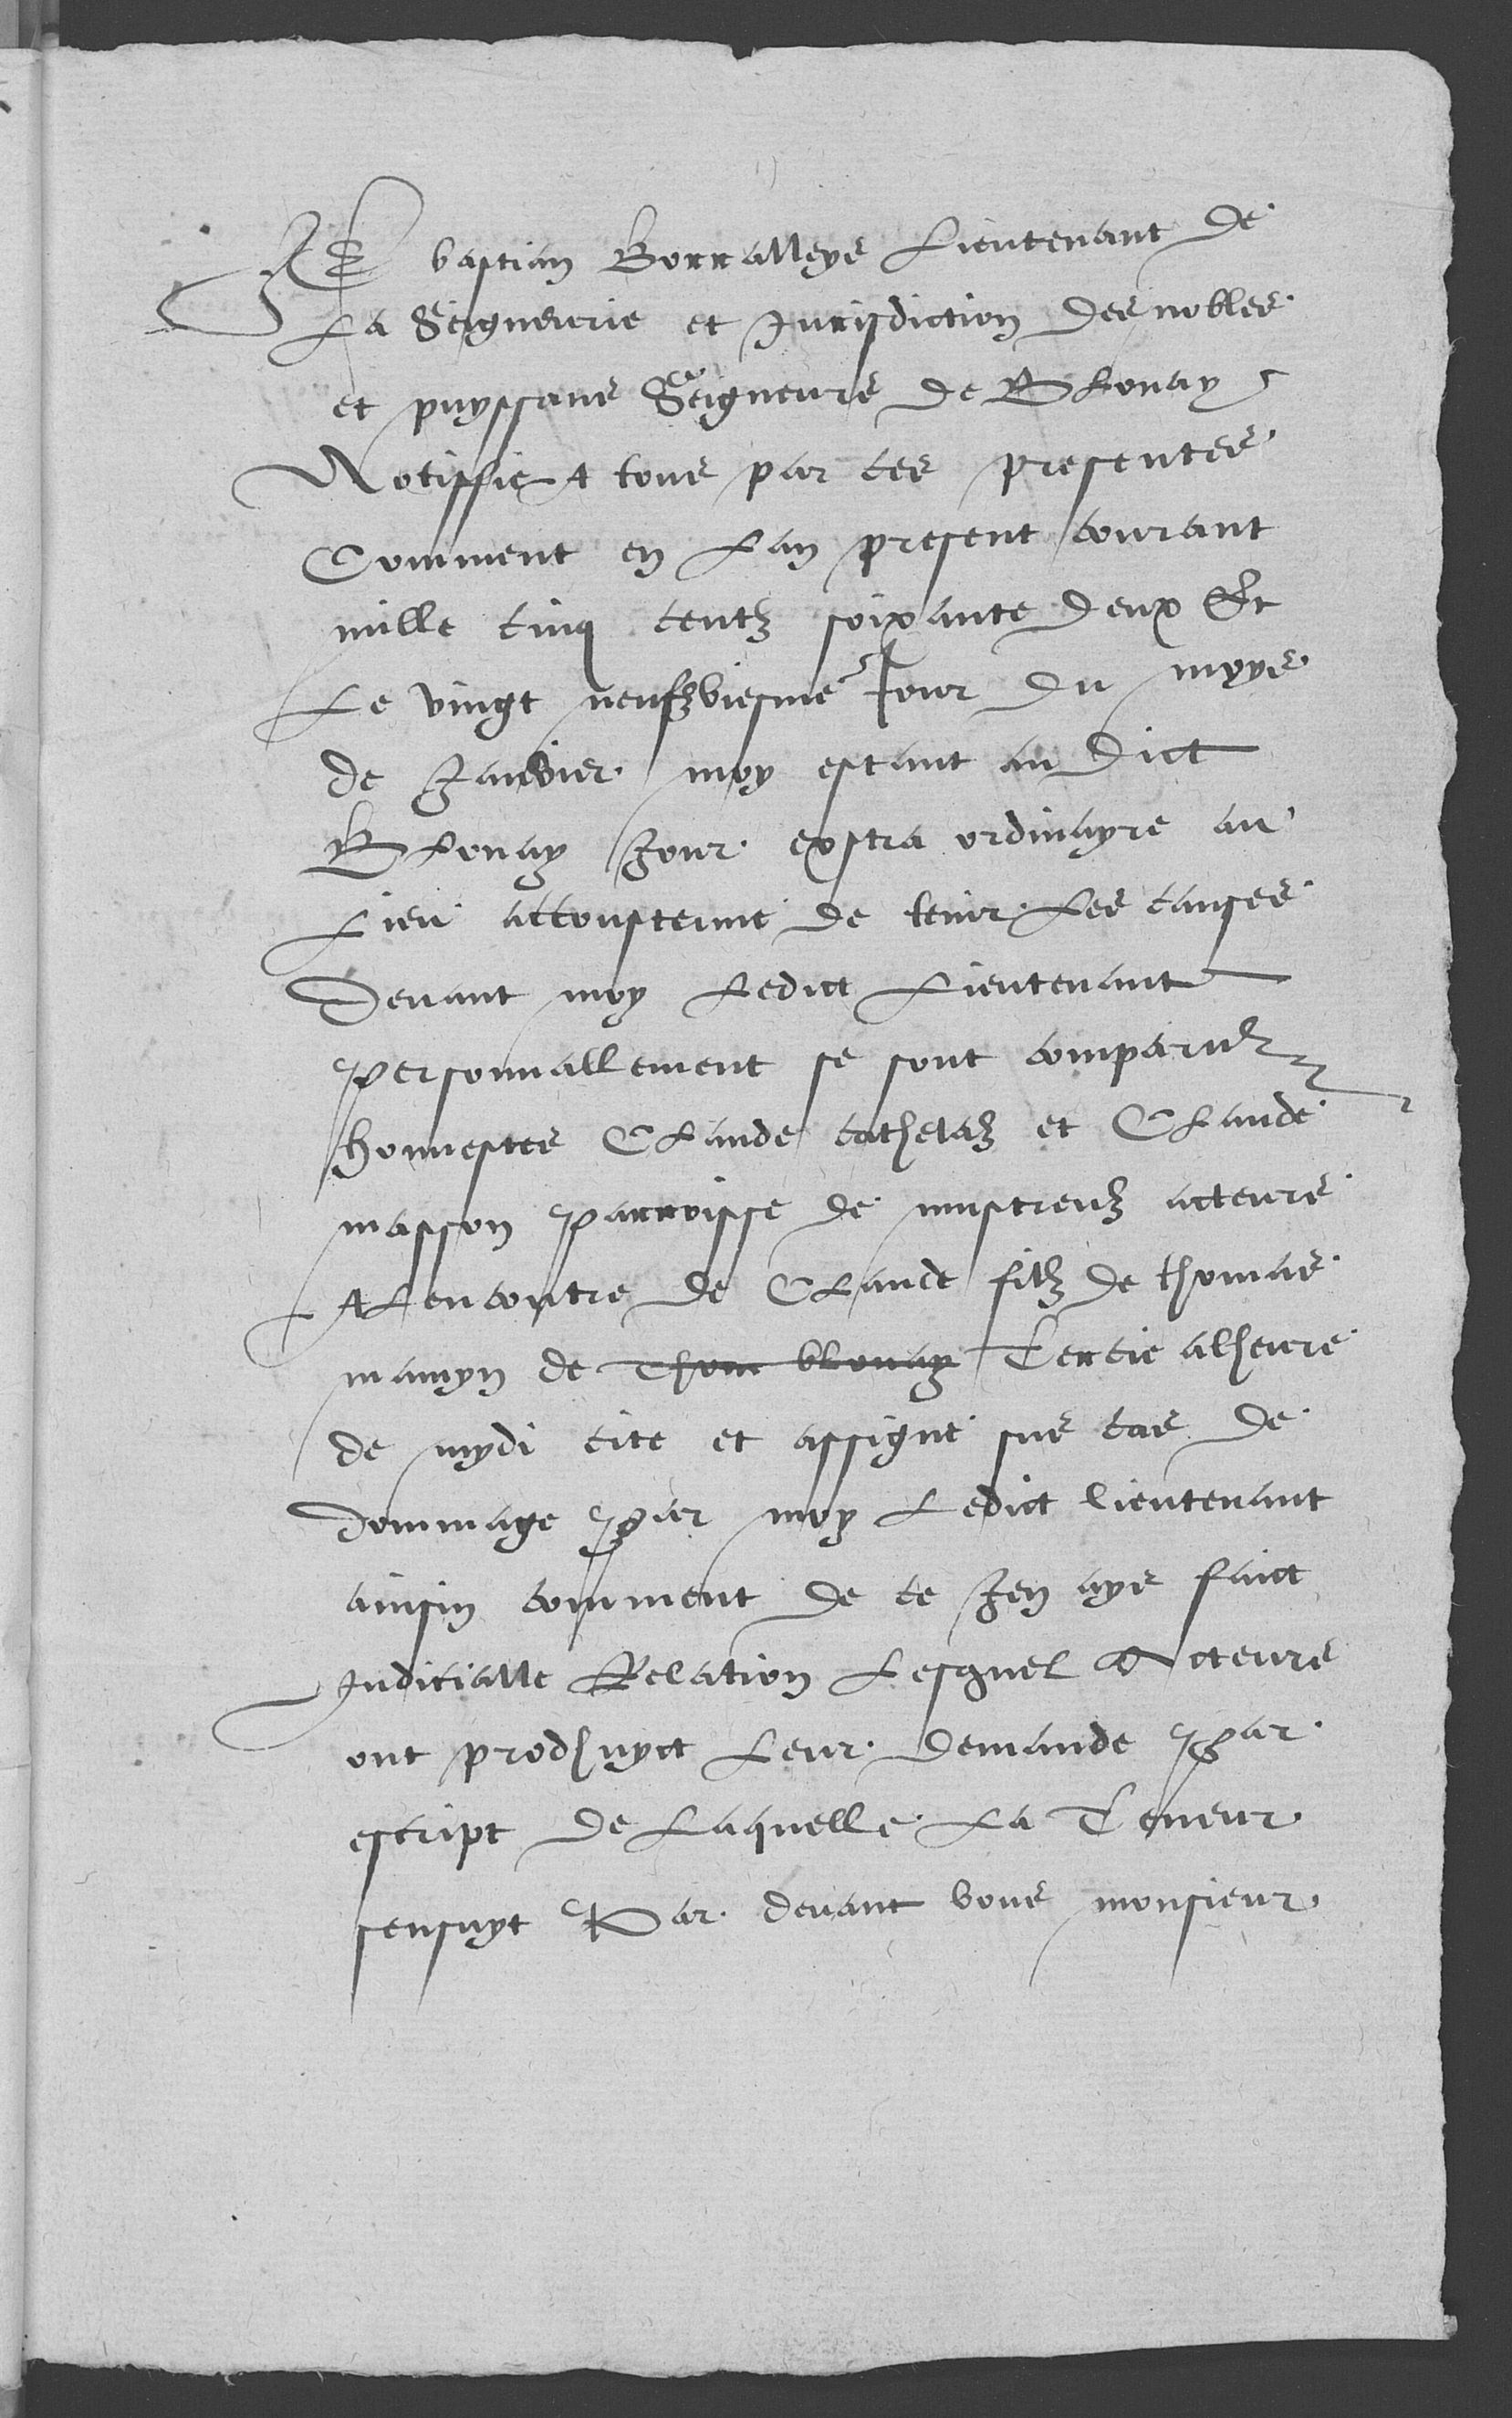 Je bastian Borralleys Lieutenant de
La Seigneurie et Jurisdiction des nobles
et puyssans Seigneurs de Blonay
Notiffie A tous par ces presentes
Comment en Lan present courant
mille cinq centz soixante deux Et
Le vingt neufzviesme Jour du moys
de Janvier moy estant au dict
Blonay Jour extra ordinayre au
Lieu accoustenne de tenir Les causes
Devant moy Ledict Lieutenant
Personnallement se sont comparuz
honnestes Claude cathelaz et Claude
masson Parroisse de mustreuz acteurs
A Lencontre de Claude filz de thomas
mamyn de Thom blonay Tercie alheure
de mydi cite et assigne sus cas de
Dommage Par moy Ledict lieutenant
ainsin comment de ce Jen ays faict
Judicialle Relation Lesquel Acteurs
ont prodhuyct Leur Demande Par
escript de Laquelle La Teneur
sensuyt Par devant vous monsieur